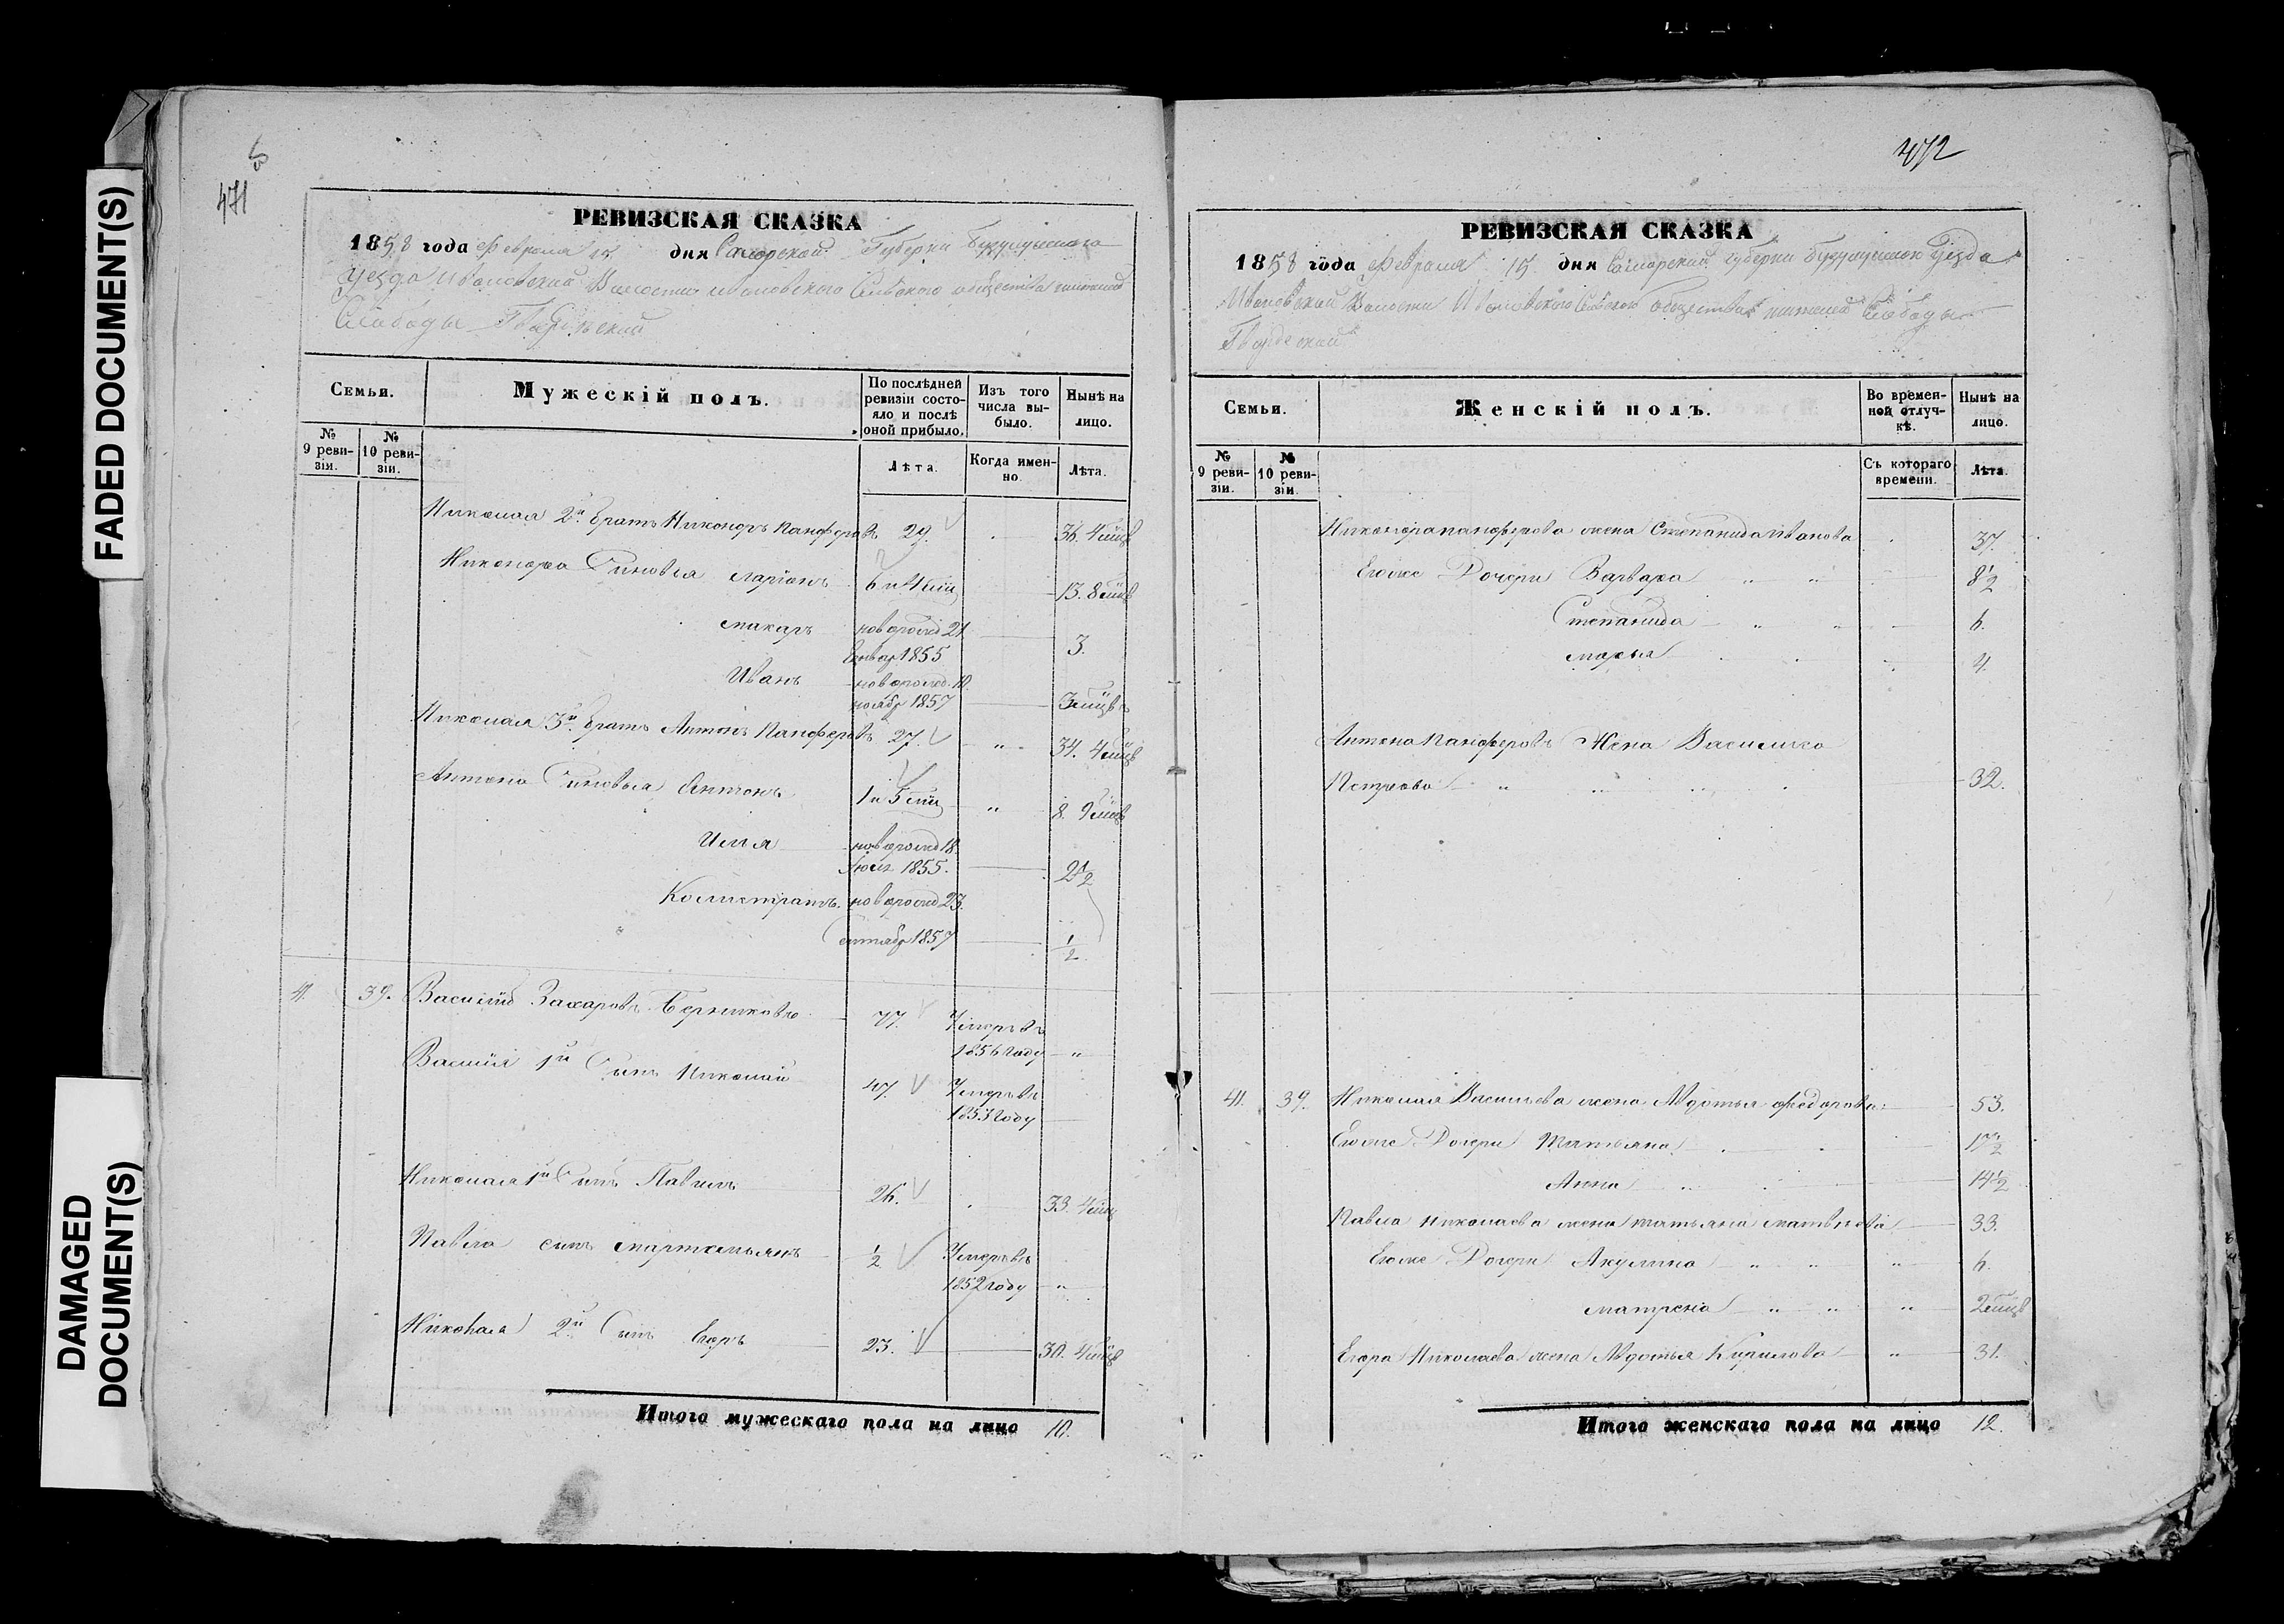 FADED DOCUMENT(S)
DAMAGED
DOCUMENT(S)
471
РЕВИЗСКАЯ СКАЗКА
1858 года Февраля 15 дня Самарской Губерни Бузулукского
Уезда Ивановский Волости Ивановского Сельского общества
Слободы Гвардейский
Семьи.
Мужескій полъ.
По послѣдней
ревизіи состо-
яло и послѣ
оной прибыло.
Изъ того
числа вы-
было.
Нынѣ на
лицо.
№
9 реви-
зіи.
№
10 реви-
зіи.
Лѣта.
Когда имен-
но.
Лѣта.
Николая 2й братъ Никоноръ Панферовъ 29. 36. 4 мцв
Никонора Сыновья Ларіонъ 6 и 4 мц 13. 8 мцв
Макаръ новорожд 21
Январ 1855 3.
Иванъ новорожд. 10.
ноябр 1857 3 мцвъ
Николая 3й братъ Антонъ Панферовъ 27. " 34. 4 мцв
Антона Сыновья Антонъ 1 и 5 мц " 8. 9 мцв
Илья новорожд 18.
Июля 1855. 2 1/2
Калистратъ новорожд 23.
Сентябр 1857 1/2
41. 39. Василій Захаровъ 77. Умеръ въ
1856 году "
Василія 1й Сынъ Николай 47. Умеръ въ
1853 году
Николая 1й Сынъ Павилъ 26. 33. 4 мц
Павла сынъ Мартемьянъ 1/2 Умеръ въ
1852 году "
Николая 2й Сынъ Егоръ 23. 30. 4 мцв
Итого мужескаго пола на лицо 10.
472
РЕВИЗСКАЯ СКАЗКА
1858 года Февраля 15 дня Самарский губерни Бузулукского Уезда
Ивановской Волости Ивановского Сельского Общества Слободы
Гвардейской
Семьи.
Женскій полъ.
Во времен-
ной отлуч-
кѣ.
Нынѣ на
лицо.
№
9 реви-
зіи.
№
10 реви-
зіи.
Съ котораго
времени.
Лѣта.
Никонора панферова жена Степанида Иванова 37.
Егоже Дочери Варвара " " 8 1/2
Степанида " " 6.
Марья 4.
Антона Панферовъ Жена Василиса
Петрова " " " 32.
41. 39. Николая Васильева жена Авдотья Федорова 53.
Егоже Дочери Татьяна 17 1/2
Анна 14 1/2
Павла Николаева жена татьяна матвѣева 33.
Егоже Дочери Акулина " " " 6.
Матрена " " " 2 мцв
Егора Николаева жена Авдотья Кирилова " 31.
Итого женскаго пола на лицо 12.